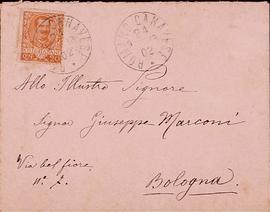 Allo Illustre Signore
Signor Giuseppe Marconi
Via bel fiore
n.º 2.
Bologna.